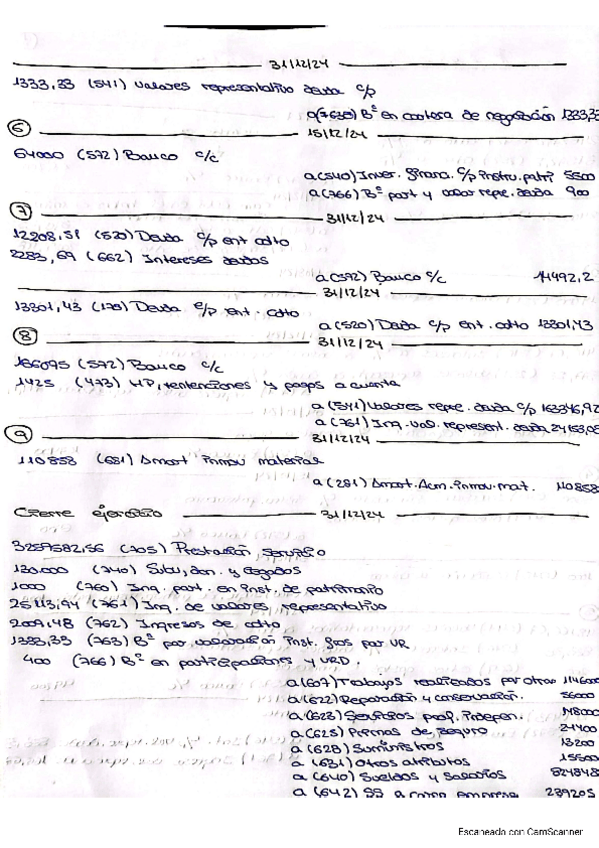 31/12/24
1333,33 (541) Valores representativo deuda c/p
a (7630) Bº en cartera de negociación 1333,33
6 15/12/24
64000 (572) Banco c/c
a (540) Inver. financ. c/p instru. patri 5500
a (766) Bº part y valor repre. deuda 900
7 31/12/24
12208,51 (520) Deuda c/p ent cdto
2283,69 (662) Intereses deudas
a (572) Banco c/c 14492,2
31/12/24
13301,43 (170) Deuda l/p ent. cdto
a (520) Deuda c/p ent. cdto 13301,43
8 31/12/24
166095 (572) Banco c/c
1425 (473) HP, retenciones y pagos a cuenta
a (541) Valores repre. deuda c/p 163346,92
a (761) Ing. val. represent. deuda
9 31/12/24
110858 (681) Amort inmov material
a (281) Amort. Acm. inmov. mat. 110858
Cierre ejercicio 31/12/24
3259582,56 (705) Prestación servicio
120000 (740) Subv, don. y legados
1000 (760) Ing. part. en inst. de patrimonio
25113,94 (761) Ing. de valores representativo
2009,48 (762) Ingresos de cdto
1333,33 (763) Bº por valoración inst. fros por VR
400 (766) Bº en participaciones y VRD.
a (607) Trabajos realizados por otras 114600
a (622) Reparación y conservación. 56000
a (623) Servicios prof. indepen. 148000
a (625) Primas de seguro 21400
a (628) Suministros 13200
a (631) Otros atributos 15500
a (640) Sueldos y salarios 824848
a (642) SS a cargo empresa 239205
Escaneado con CamScanner